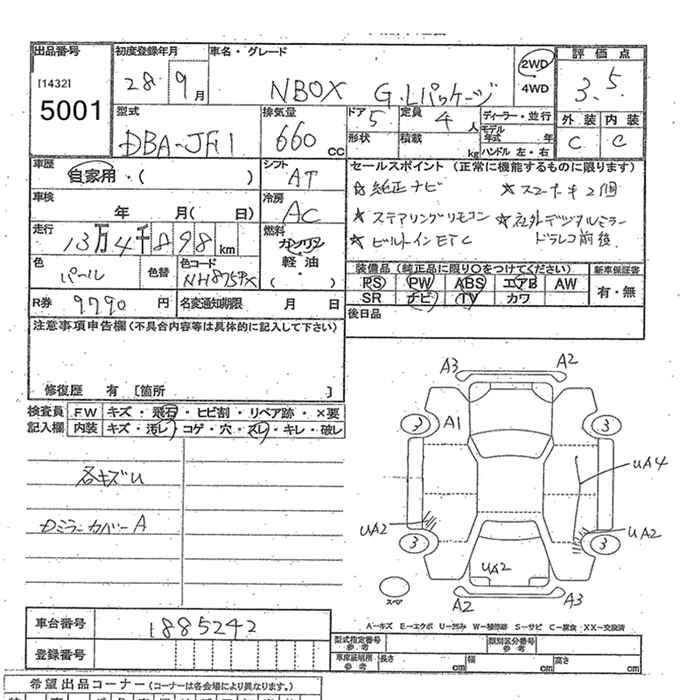 出品番号
[1432]
5001
初度登録年月
28年 9月
車名・グレード
NBOX G.Lパッケージ
2WD
4WD
評価点
3.5
外装 内装
C C
型式
DBA-JF1
排気量
660 CC
ドア 5
形状
定員 4人
積載 kg
ディーラー・並行
モデル年式 年
ハンドル 左・右
車歴
自家用・( )
シフト
AT
車検
年 月( 日)
冷房
AC
走行
13万4千898 km
燃料
ガソリン
軽油
・( )
色
パール
色替
色コード
NH875PX
R券 9790 円
名変通知期限 月 日
セールスポイント(正常に機能するものに限ります)
☆純正ナビ ★スマーキ2個
★ステアリングリモコン ★社外デジタルミラー
ドラレコ前後
★ビルトインETC
装備品(純正品に限り○をつけてください)
PS PW ABS エアB AW
SR ナビ TV カワ
新車保証書
有・無
後日品
注意事項申告欄(不具合内容等は具体的に記入して下さい)
修復歴 有 [箇所 ]
検査員記入欄
FW キズ・飛石・ヒビ割・リペア跡・×要
内装 キズ・汚レ・コゲ・穴・スレ・キレ・破レ
各キズU
Dミラーカバー A
A3 A2
3 A1 3
UA4
UA2 UA2
3 3
UA2
スペア
A2 A3
A―キズ E―エクボ U―凹み W―補修跡 S―サビ C―腐食 XX―交換済
車台番号 1885242
登録番号
型式指定番号
参考
類別区分番号
参考
車庫証明用
参考
長さ cm 幅 cm 高さ cm
希望出品コーナー(コーナーは各会場により異なります。)